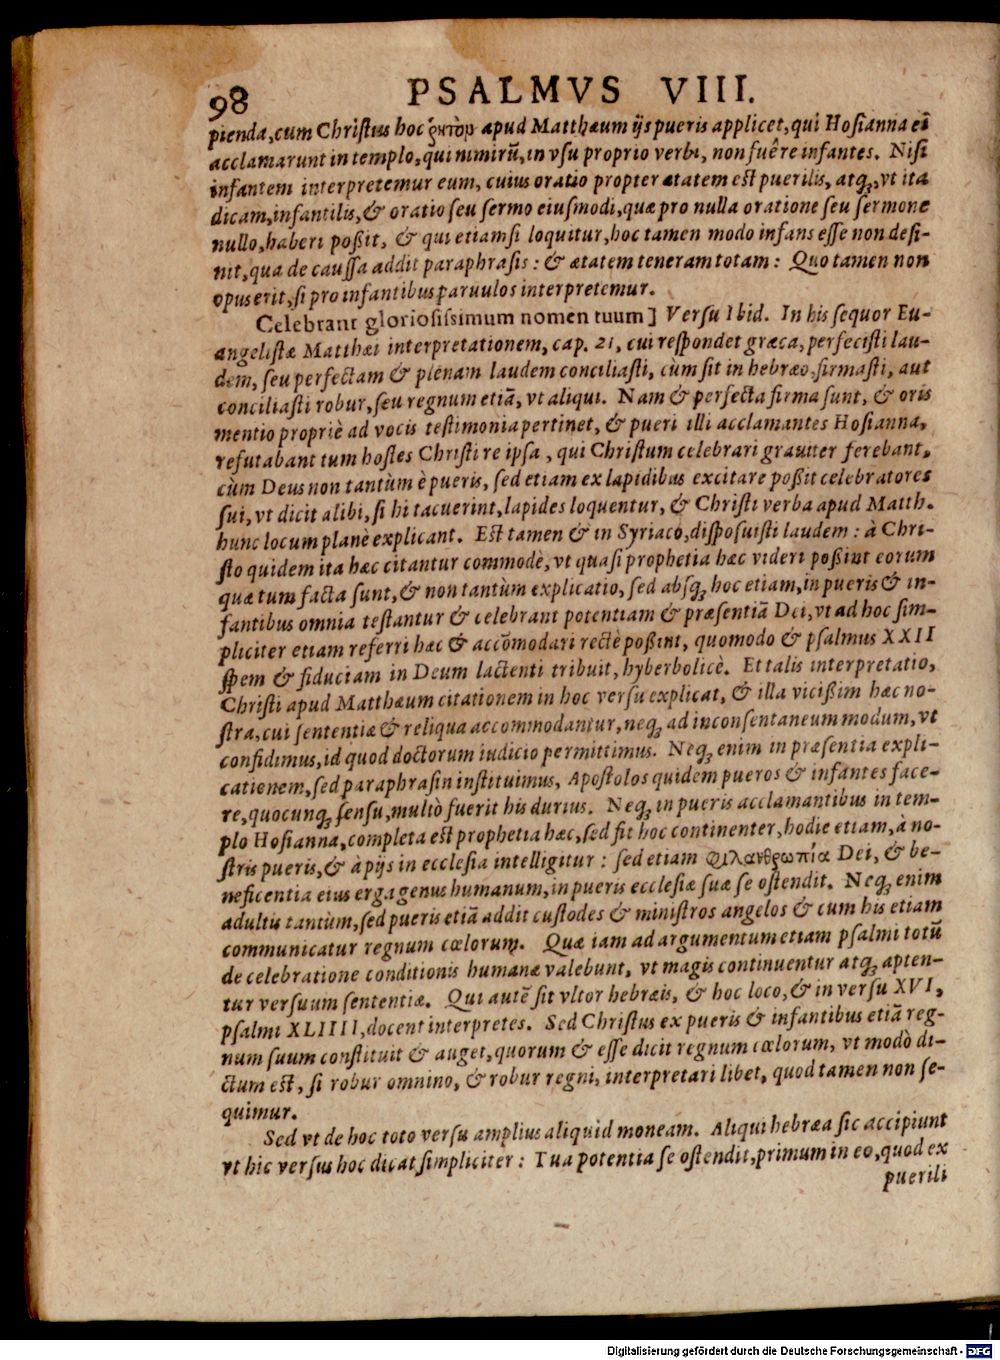 98 PSALMVS VIII.
pienda, cum Christus hoc ῥητὸν apud Matthæum ijs pueris applicet, qui Hosianna ei
acclamarunt in templo, qui nimirũ, in vsu proprio verbi, non fuêre infantes. Nisi
infantem interpretemur eum, cuius oratio propter ætatem est puerilis, atq;, vt ita
dicam, infantilis, & oratio seu sermo eiusmodi, quæ pro nulla oratione seu sermone
nullo, haberi poßit, & qui etiamsi loquitur, hoc tamen modo infans esse non desi-
nit, qua de caussa addit paraphrasis: & ætatem teneram totam: Quo tamen non
opus erit, si pro infantibus paruulos interpretemur.
Celebrant gloriosissimum nomen tuum] Versu Ibid. In his sequor Eu-
angelistæ Matthæi interpretationem, cap. 21, cui respondet græca, perfecisti lau-
dem, seu perfectam & plenam laudem conciliasti, cùm sit in hebræo, firmasti, aut
conciliasti robur, seu regnum etiã, vt aliqui. Nam & perfecta firma sunt, & oris
mentio propriè ad vocis testimonia pertinet, & pueri illi acclamantes Hosianna,
refutabant tum hostes Christi re ipsa, qui Christum celebrari grauiter ferebant,
cùm Deus non tantùm è pueris, sed etiam ex lapidibus excitare poßit celebratores
sui, vt dicit alibi, si hi tacuerint, lapides loquentur, & Christi verba apud Matth.
hunc locum planè explicant. Est tamen & in Syriaco, disposuisti laudem: à Chri-
sto quidem ita hæc citantur commodè, vt quasi prophetia hæc videri poßint eorum
quæ tum facta sunt, & non tantùm explicatio, sed absq; hoc etiam, in pueris & in-
fantibus omnia testantur & celebrant potentiam & præsentiã Dei, vt ad hoc sim-
pliciter etiam referri hæc & accõmodari rectè poßint, quomodo & psalmus XXII
spem & fiduciam in Deum lactenti tribuit, hyberbolicè. Et talis interpretatio,
Christi apud Matthæum citationem in hoc versu explicat, & illa vicißim hæc no-
stra, cui sententiæ & reliqua accommodantur, neq; ad inconsentaneum modum, vt
confidimus, id quod doctorum iudicio permittimus. Neq; enim in præsentia expli-
cationem, sed paraphrasin instituimus, Apostolos quidem pueros & infantes face-
re, quocunq; sensu, multò fuerit his durius. Neq; in pueris acclamantibus in tem-
plo Hosianna, completa est prophetia hæc, sed fit hoc continenter, hodie etiam, à no-
stris pueris, & à pijs in ecclesia intelligitur: sed etiam φιλανθρωπία Dei, & be-
neficentia eius erga genus humanum, in pueris ecclesiæ suæ se ostendit. Neq; enim
adultis tantùm, sed pueris etiã addit custodes & ministros angelos & cum his etiam
communicatur regnum cœlorum. Quæ iam ad argumentum etiam psalmi totũ
de celebratione conditionis humanæ valebunt, vt magis continuentur atq; apten-
tur versuum sententiæ. Qui autẽ sit vltor hebræis, & hoc loco, & in versu XVI,
psalmi XLIIII, docent interpretes. Sed Christus ex pueris & infantibus etiã reg-
num suum constituit & auget, quorum & esse dicit regnum cœlorum, vt modò di-
ctum est, si robur omnino, & robur regni, interpretari libet, quod tamen non se-
quimur.
Sed vt de hoc toto versu amplius aliquid moneam. Aliqui hebræa sic accipiunt
vt hic versus hoc dicat simpliciter: Tua potentia se ostendit, primum in eo, quod ex
puerili
Digitalisierung gefördert durch die Deutsche Forschungsgemeinschaft - DFG